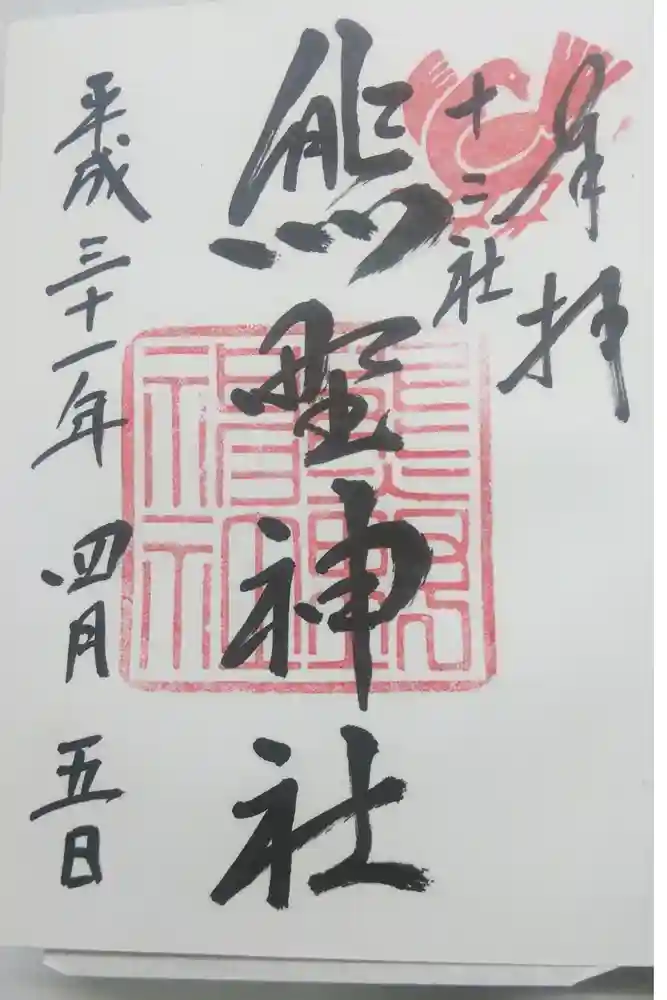 奉拝
十二社
熊野神社
平成三十一年四月五日